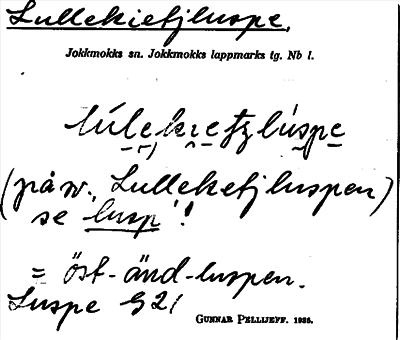 Lullekietjluspe.
Jokkmokks sn. Jokkmokks lappmarks tg. Nb l.
lúlekietzlúspe
(på w. Lulleketjluspen)
se lusp !
= öst-änd-luspen.
Luspe G 21
GUNNAR PELLIJEFF. 1935.